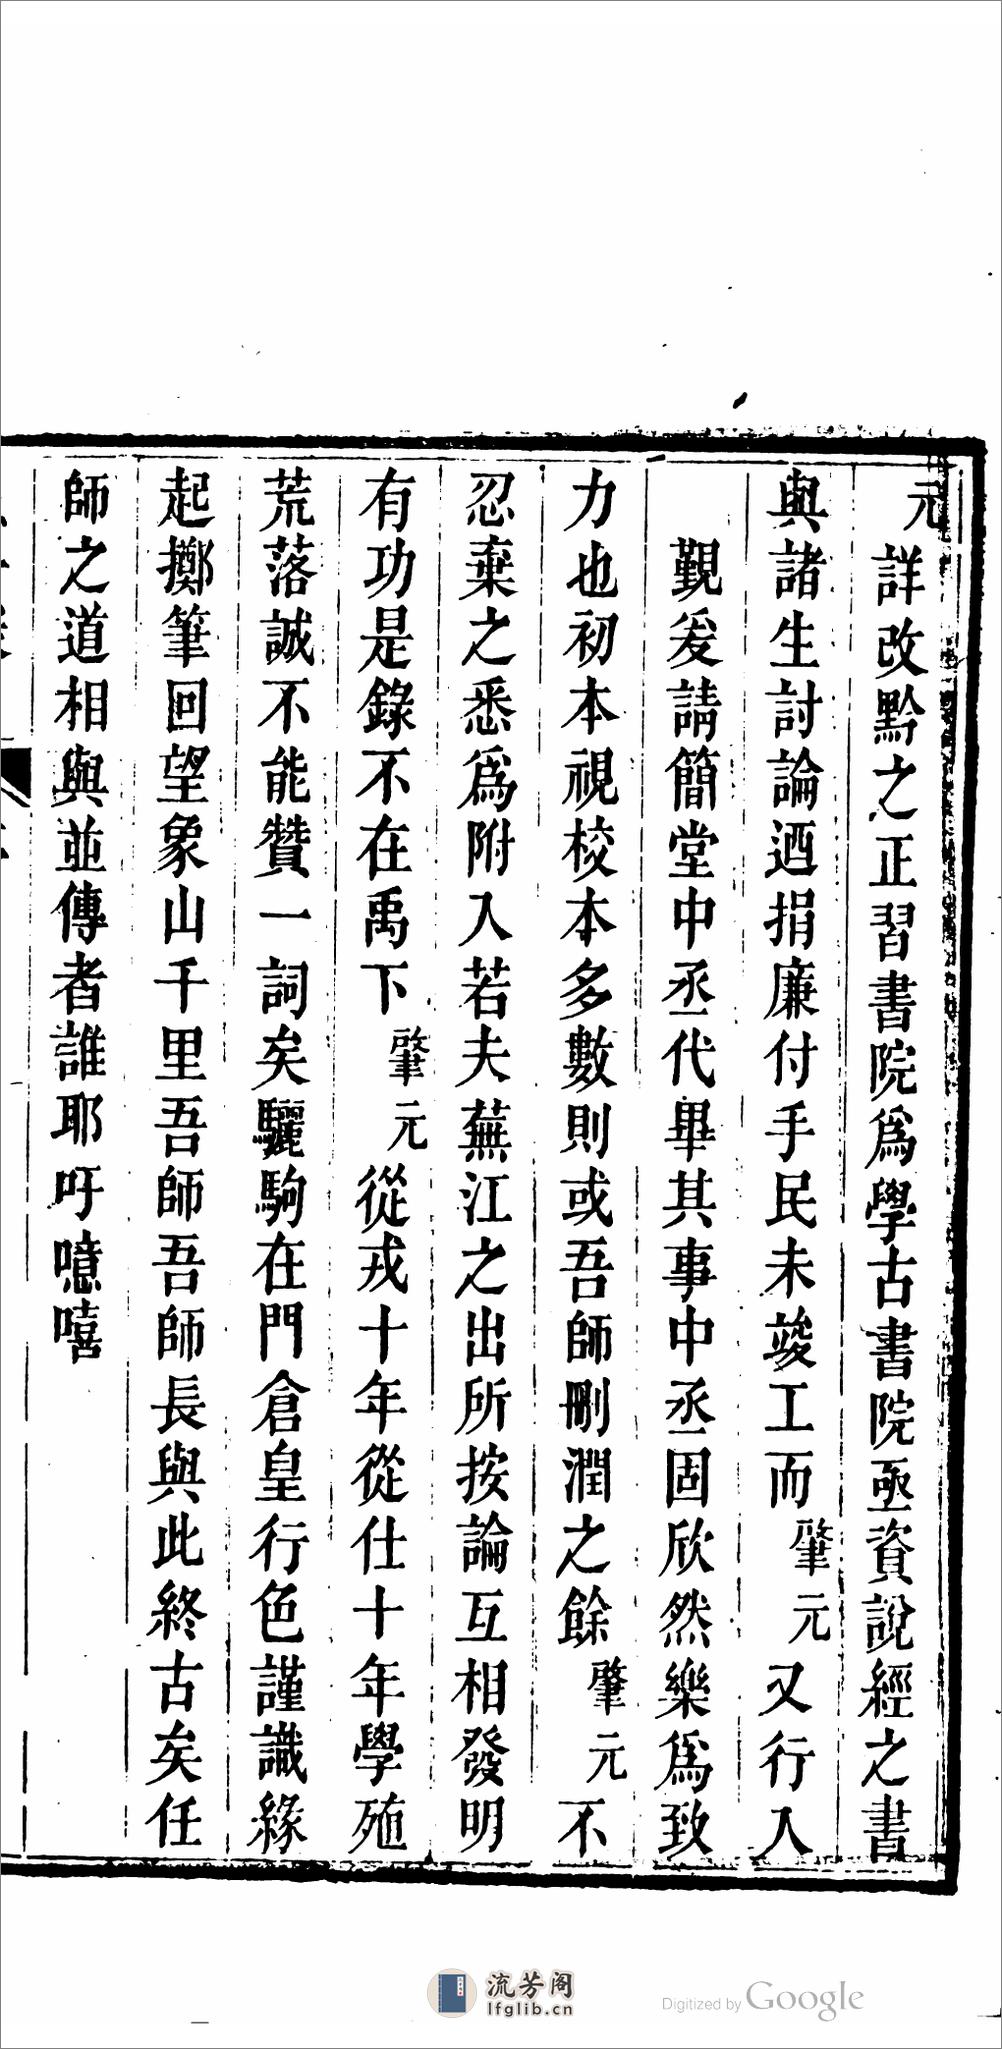 元詳改黔之正習書院爲學古書院亟資說經之書
與諸生討論迺捐廉付手民未竣工而肇元又行入
覲爰請簡堂中丞代畢其事中丞固欣然樂爲致
力也初本視校本多數則或吾師刪潤之餘肇元不
忍棄之悉爲附入若夫蕪江之出所按論互相發明
有功是錄不在禹下肇元從戎十年從仕十年學殖
荒落誠不能贊一詞矣驪駒在門倉皇行色謹識緣
起擲筆回望象山千里吾師吾師長與此終古矣任
師之道相與並傳者誰耶吁噫嘻
流芳阁
lfglib.cn
Digitized by Google